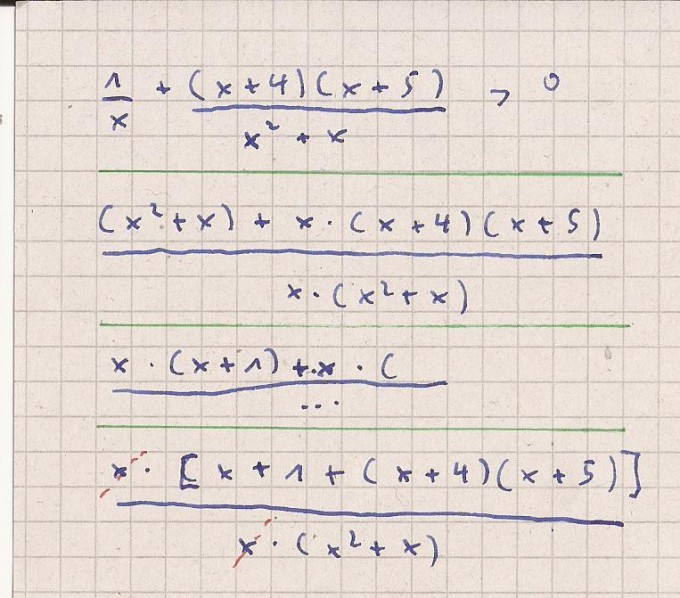 1/x + (x+4)(x+5)/(x² + x) > 0
((x²+x) + x·(x+4)(x+5))/(x·(x²+x))
(x·(x+1)+x·()/...
(x·[x+1+(x+4)(x+5)])/(x·(x²+x))